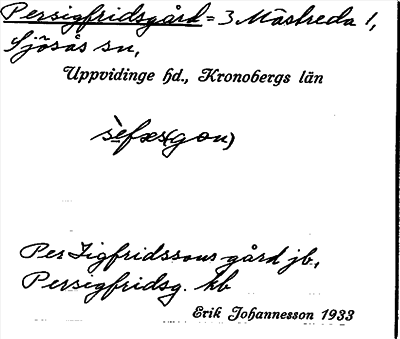 Persigfridsgård = 3 Måstreda 1,
Sjösås sn,
Uppvidinge hd., Kronobergs län
sèfæs(gon)
Per Sigfridssons gård jb,
Persigfridsg. hb
Erik Johannesson 1933